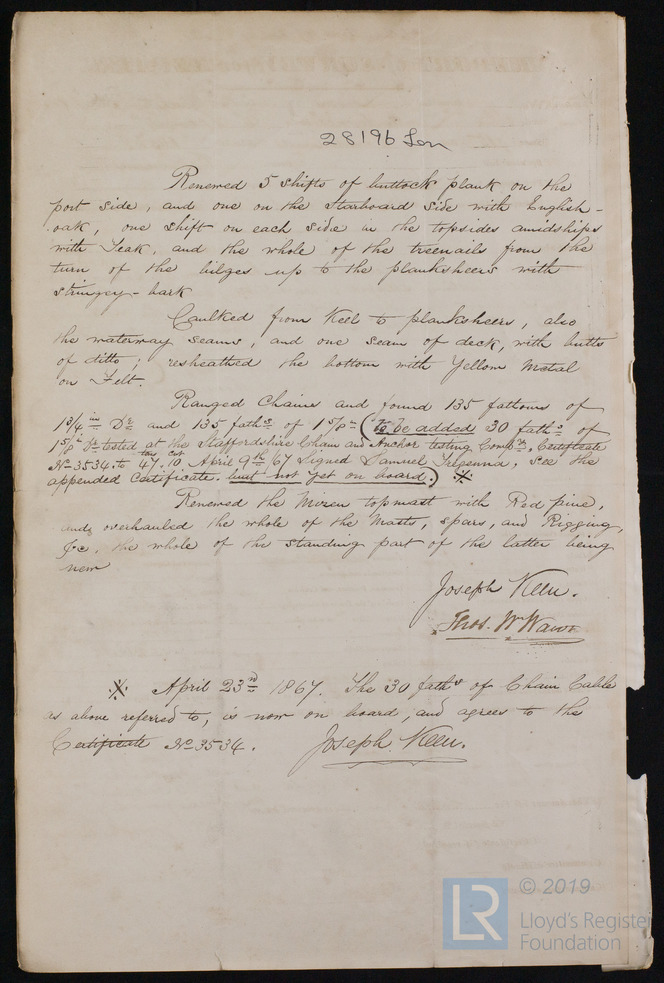 28196 Lon
Renewed 5 shifts of buttock plank on the
port side, and one on the Starboard side with English-
oak, one shift on each side in the topsides amidships
with Teak, and the whole of the treenails from the
turn of the bilges up to the planksheers with
stringey-bark
Caulked from Keel to planksheers, also
the waterway seams, and one seam of deck, with butts
of ditto; resheathed the bottom with Yellow Metal
on Felt.
Ranged Chains and found 135 fathoms of
1 3/4 in Dr and 135 faths of 1 5/8 in (to be added 30 faths of
1 5/8 in Dr tested at the Staffordshire Chain and Anchor testing Compy, Certificate
No 3534. to 47 tons. 10 cwt April 9th /67 Signed Samuel Tregenna, see the
appended Certificate. but not yet on board.) ※
Renewed the Mizen topmast with Red pine,
and overhauled the whole of the Masts, spars, and Rigging,
&c, the whole of the standing part of the latter being
new
Joseph Keen.
Thos. Wm
※ April 23rd 1867. The 30 faths of Chain Cable
as above referred to, is now on board, and agrees to the
Certificate No 3534. Joseph Keen.
LR
© 2019
Lloyd's Register
Foundation